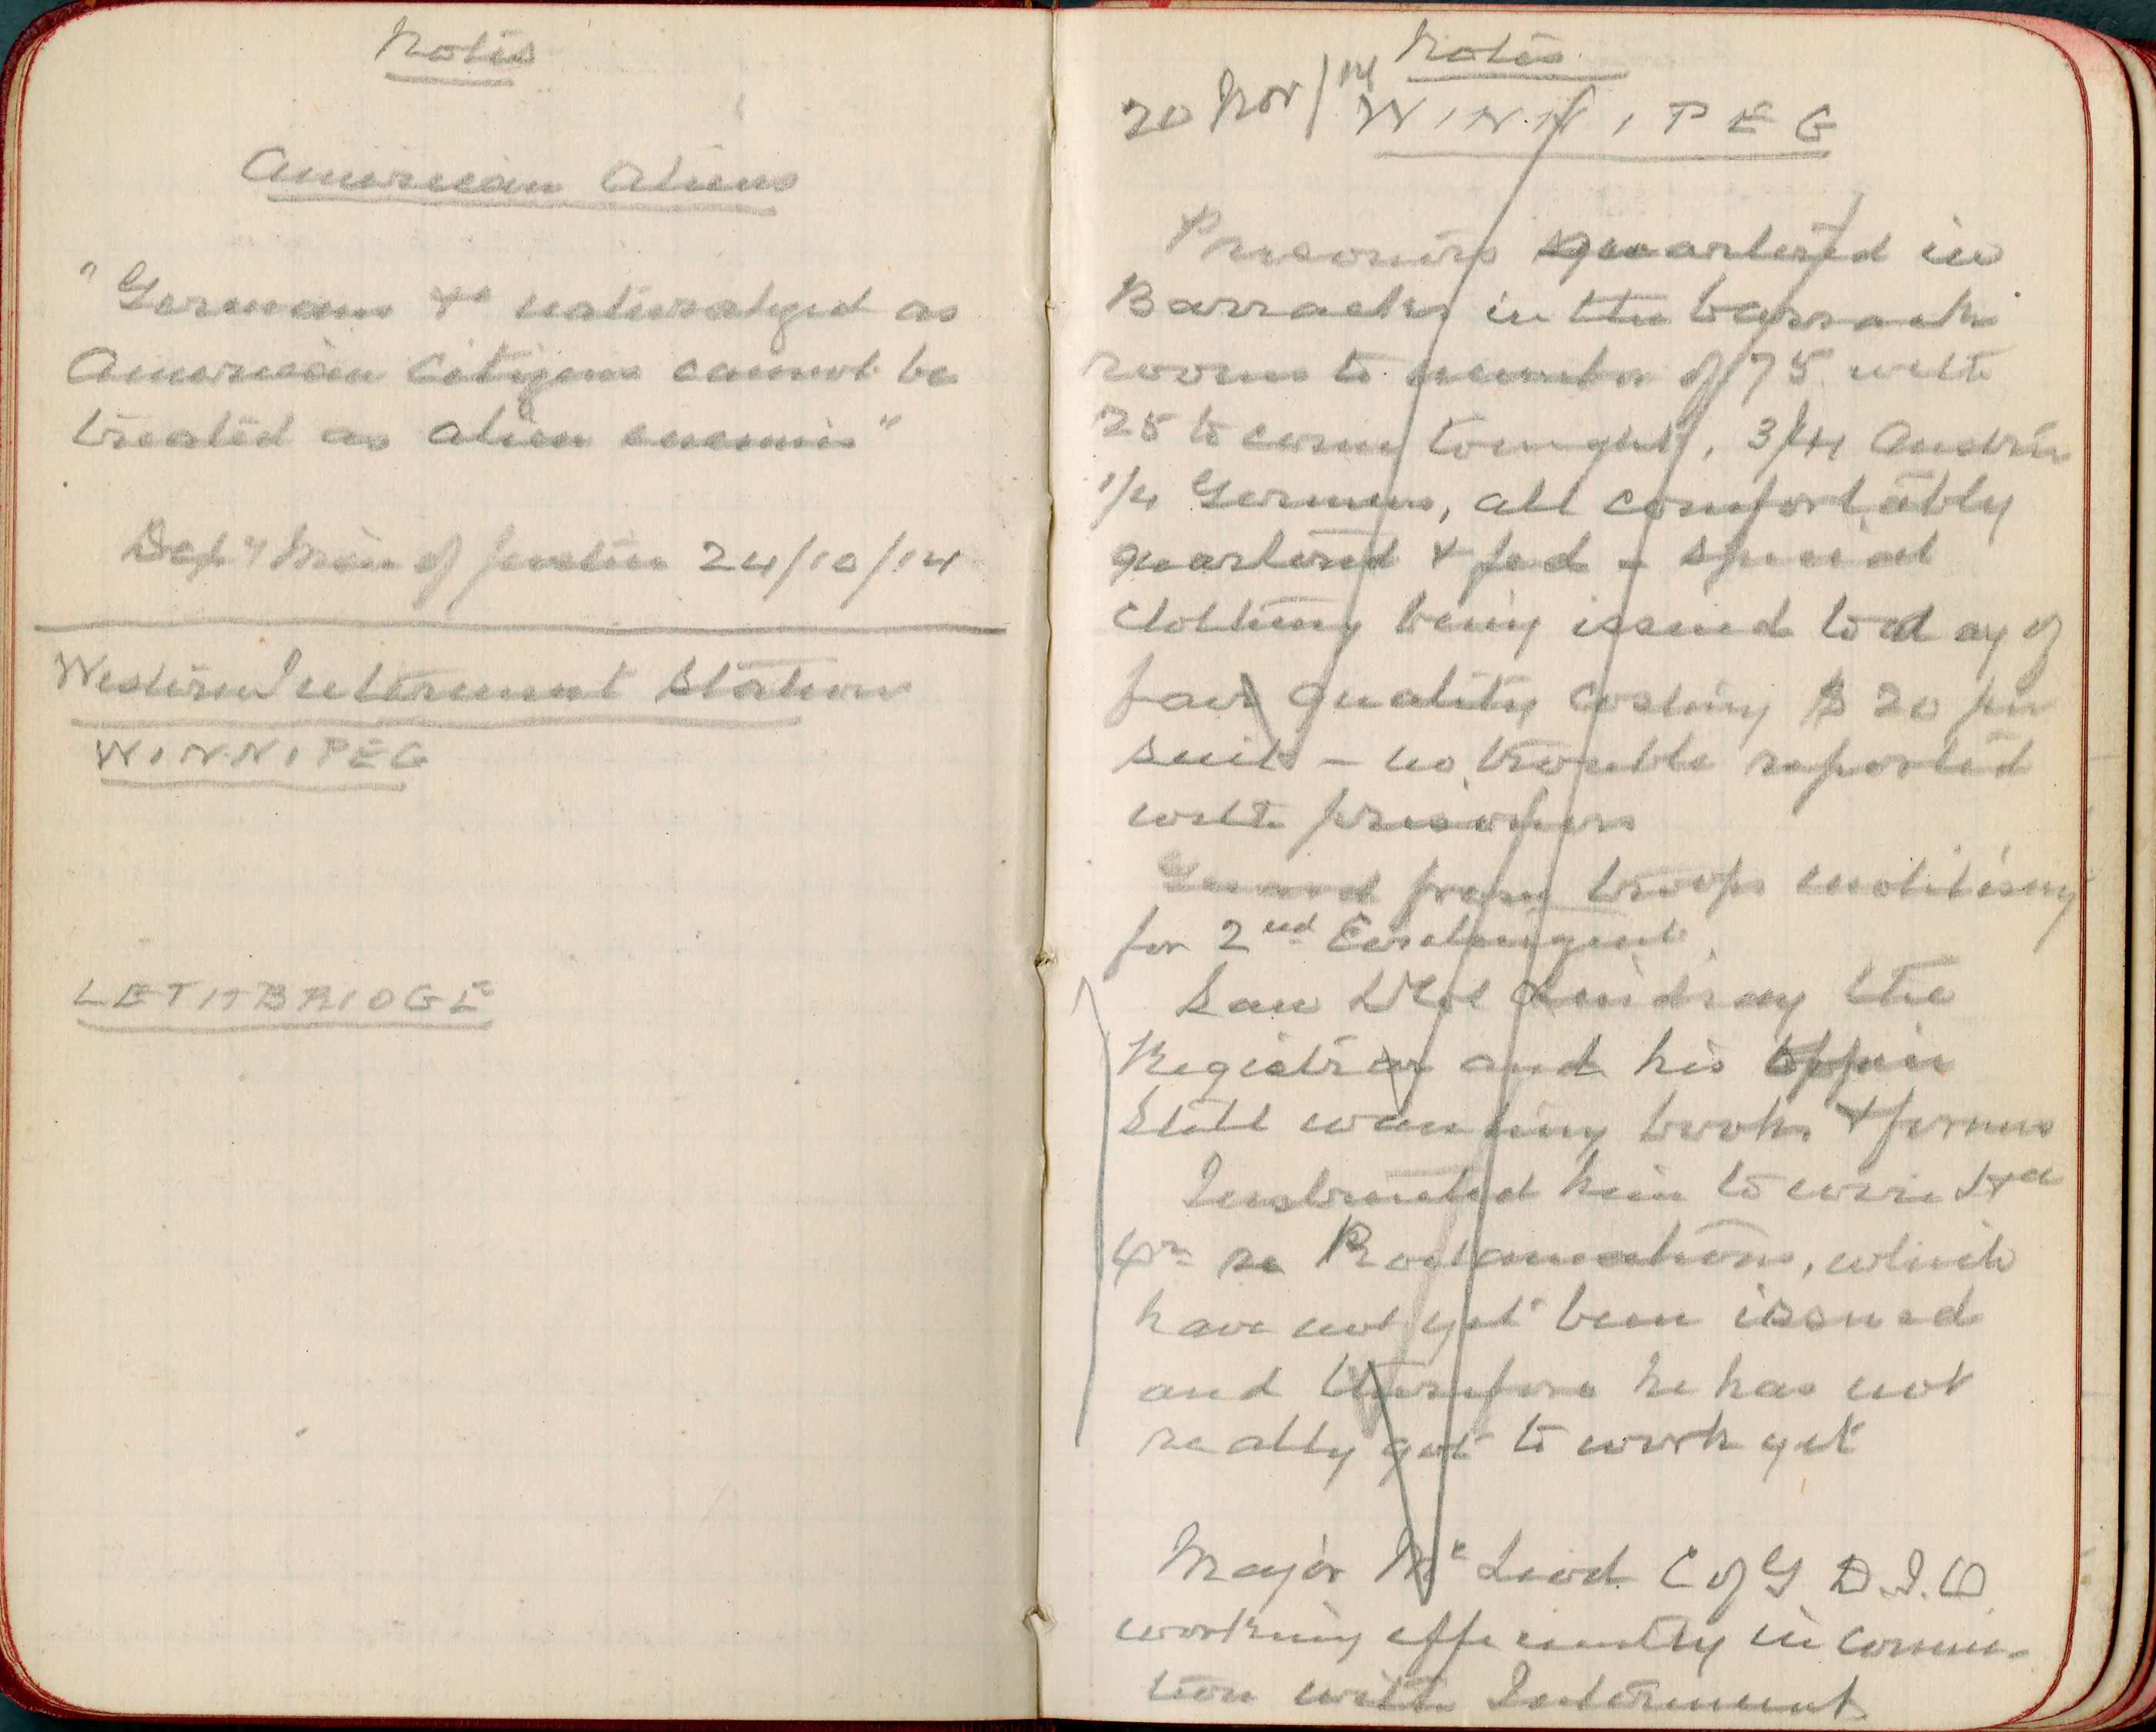 Notes
American Aliens
"Germans &c naturalized as
American Citizens cannot be
treated as alien enemies"
Dep'y Min of Justice 24/10/14
Western Internment Station
WINNIPEG
LETHBRIDGE
Notes
20 Nov/14 WINNIPEG
Prisoners quartered in
Barracks in the barrack
rooms to number of 75 with
25 to come tonight, 3/4 Austrian
1/4 Germans, all comfortably
quartered & fed - special
clothing being issued today of
fair quality costing $20 per
suit - no trouble reported
with prisoners
Guard from troops mobilising
for 2nd Contingent
Saw Lt Col Lindsay the
Registrar and his office
still wanting books & forms
Instructed him to wire Hd
Qrs re Proclamations, which
have not yet been issued
and therefore he has not
really got to work yet
Major McLeod C of G D.I.O
working efficiently in connec-
tion with Internment